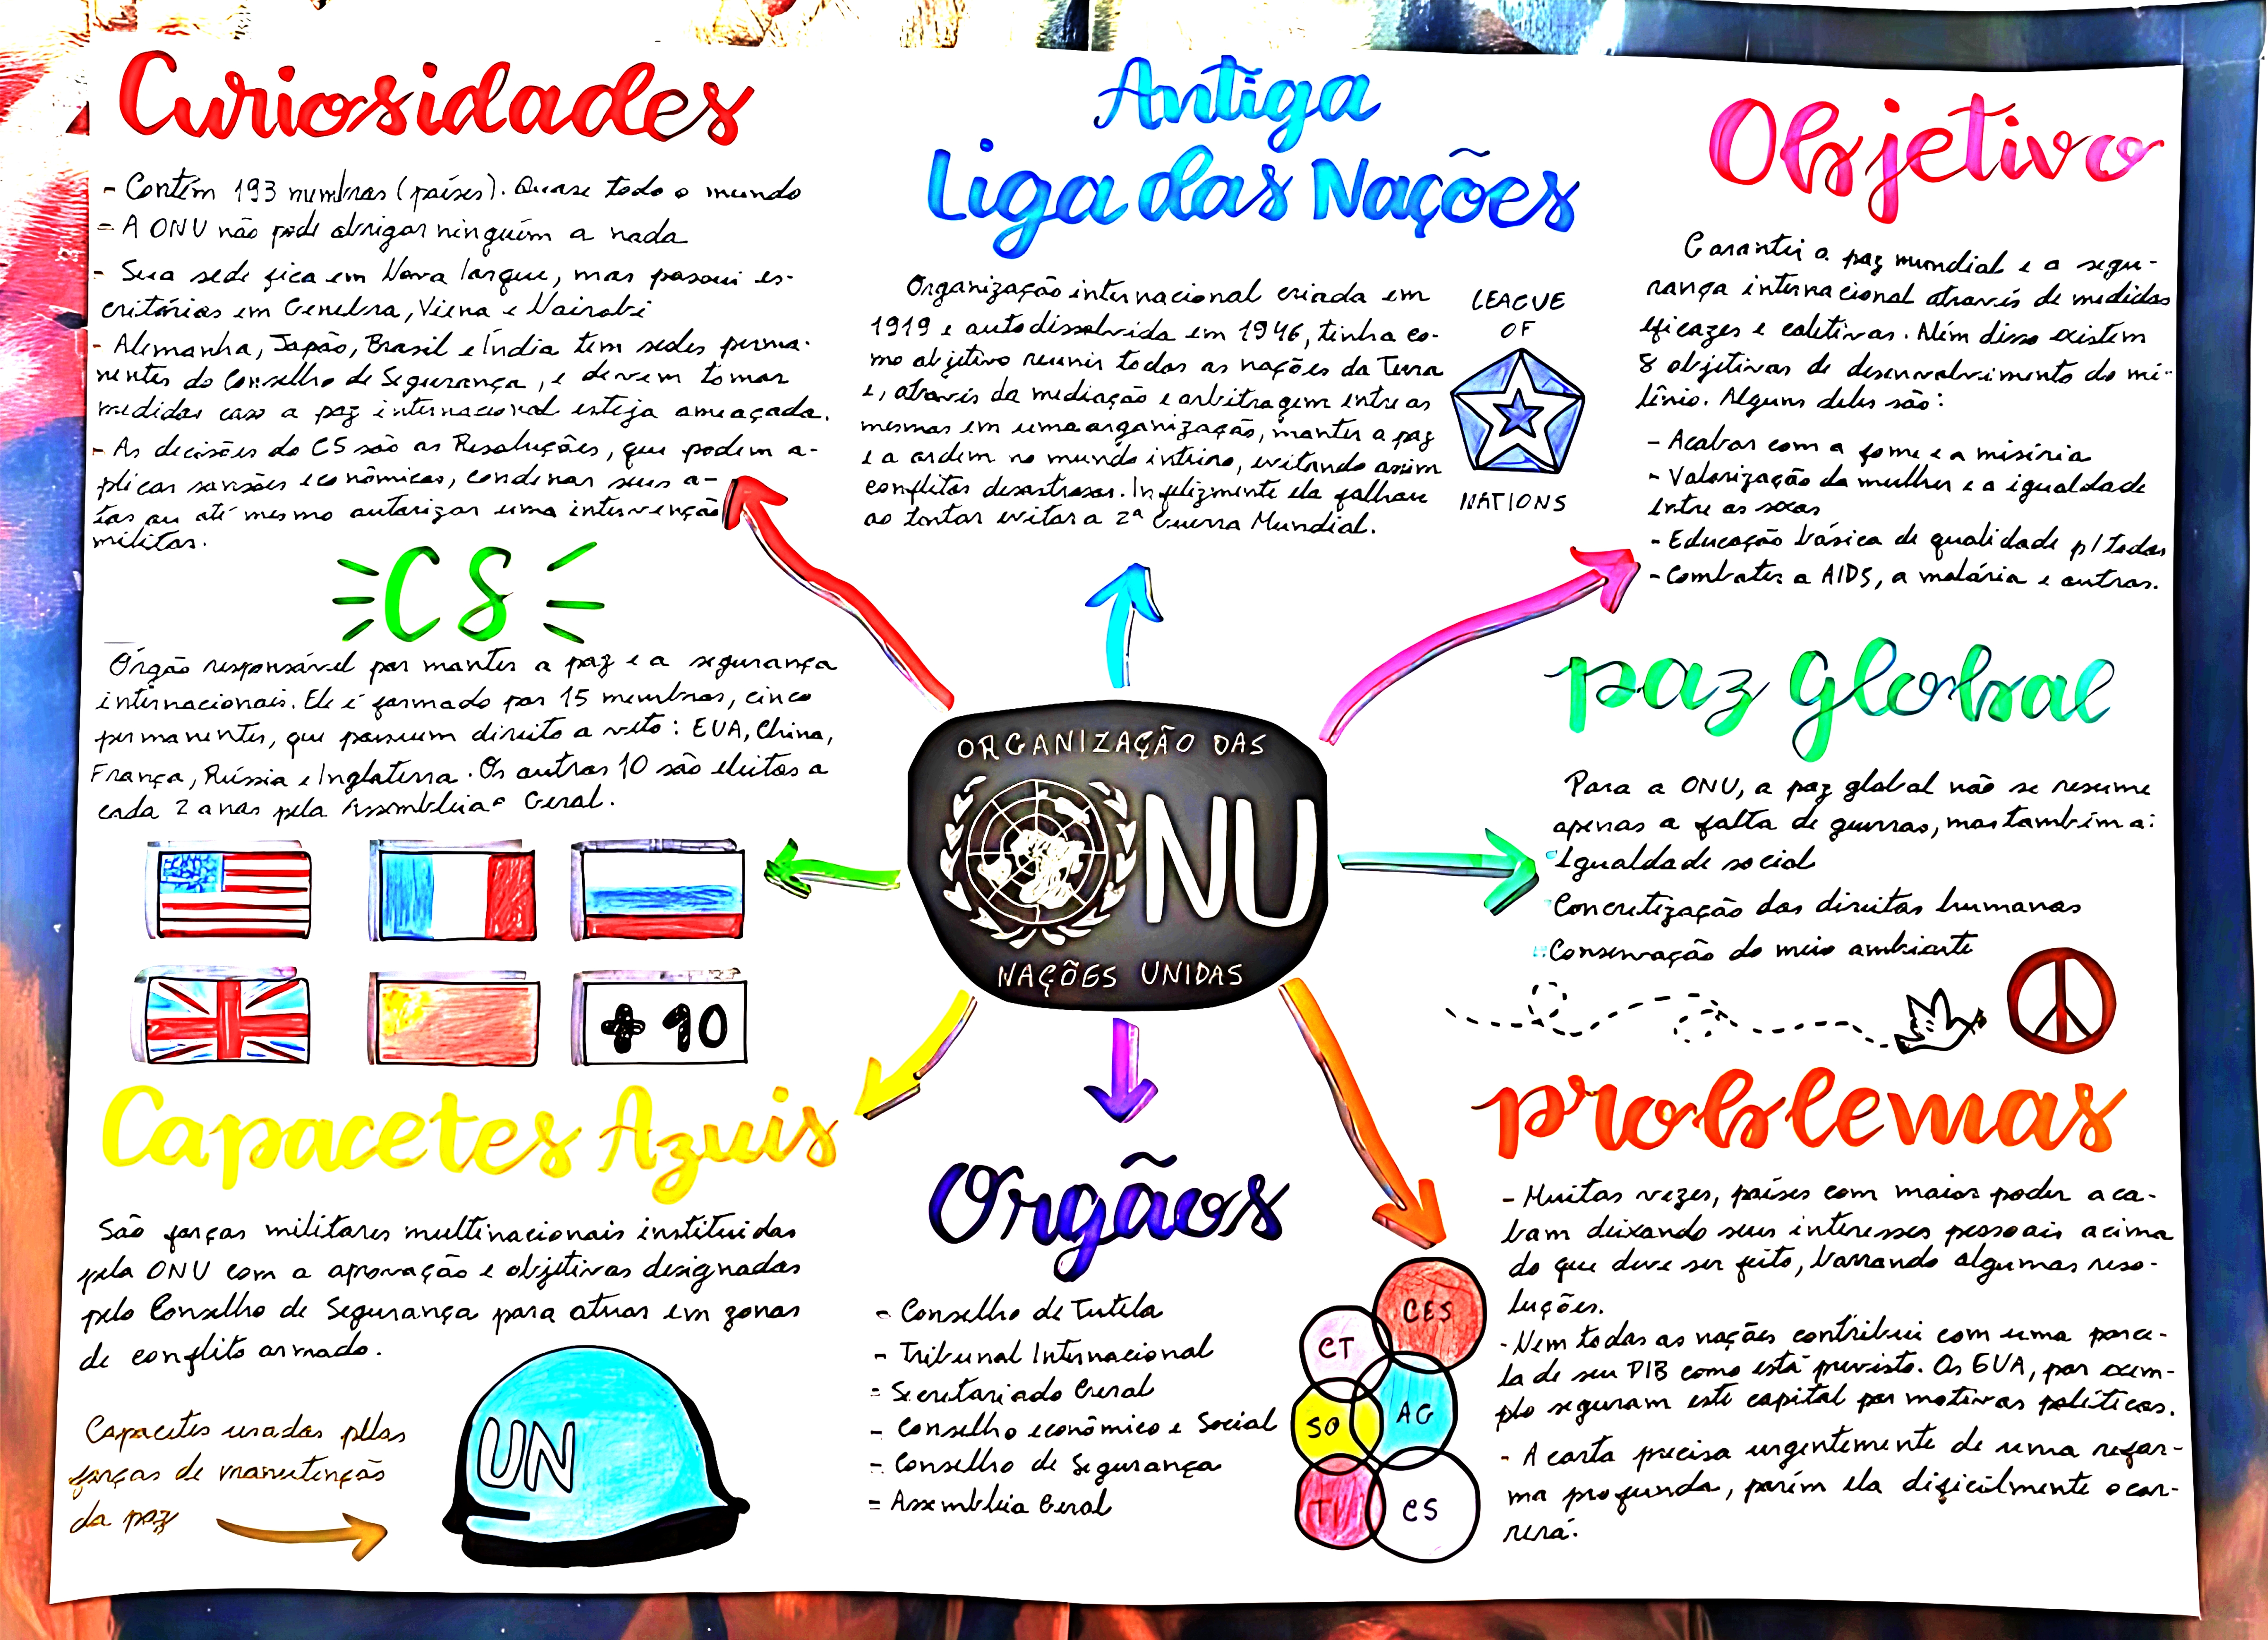 Curiosidades
- Contém 193 membros (países). Quase todo o mundo
- A ONU não pode obrigar ninguém a nada
- Sua sede fica em Nova Iorque, mas possui es-
critórios em Genebra, Viena e Nairobi
- Alemanha, Japão, Brasil e Índia tem sedes perma-
nentes do Conselho de Segurança, e devem tomar
medidas caso a paz internacional esteja ameaçada.
- As decisões do CS são as Resoluções, que podem a-
plicar sansões econômicas, condenar seus a-
tos ou até mesmo autorizar uma intervenção
militar.
CS
Órgão responsável por manter a paz e a segurança
internacionais. Ele é formado por 15 membros, cinco
permanentes, que possuem direito a veto: EUA, China,
França, Rússia e Inglaterra. Os outros 10 são eleitos a
cada 2 anos pela Assembleia Geral.
+ 10
Capacetes Azuis
São forças militares multinacionais instituidas
pela ONU com a aprovação e objetivos designados
pelo Conselho de Segurança para atuar em zonas
de conflito armado.
Capacetes usados pelas
forças de manutenção
da paz
UN
Antiga
Liga das Nações
Organização internacional criada em
1919 e autodissolvida em 1946, tinha co-
mo objetivo reunir todas as nações da Terra
e, através da mediação e arbitragem entre as
mesmas em uma organização, manter a paz
e a ordem no mundo inteiro, evitando assim
conflitos desastrosos. Infelizmente ela falhou
ao tentar evitar a 2ª Guerra Mundial.
LEAGUE
OF
NATIONS
ORGANIZAÇÃO DAS
ONU
NAÇÕES UNIDAS
Orgãos
- Conselho de Tutela
- Tribunal Internacional
- Secretariado Geral
- Conselho econômico e Social
- Conselho de Segurança
- Assembleia Geral
CES
CT
AG
SO
TI
CS
Objetivo
Garantir a paz mundial e a segu-
rança internacional através de medidas
eficazes e coletivas. Além disso existem
8 objetivos de desenvolvimento do mi-
lênio. Alguns deles são:
- Acabar com a fome e a miséria
- Valorização da mulher e a igualdade
entre os sexos
- Educação básica de qualidade p/ todos
- Combater a AIDS, a malária e outras.
paz global
Para a ONU, a paz global não se resume
apenas a falta de guerras, mas também a:
Igualdade social
Concretização dos direitos humanos
Conservação do meio ambiente
problemas
- Muitas vezes, países com maior poder aca-
bam deixando seus interesses pessoais acima
do que deve ser feito, barrando algumas reso-
luções.
- Nem todas as nações contribui com uma parce-
la de seu PIB como está previsto. Os EUA, por exem-
plo seguram este capital por motivos políticos.
- A carta precisa urgentemente de uma refor-
ma profunda, porém ela dificilmente ocor-
rerá.